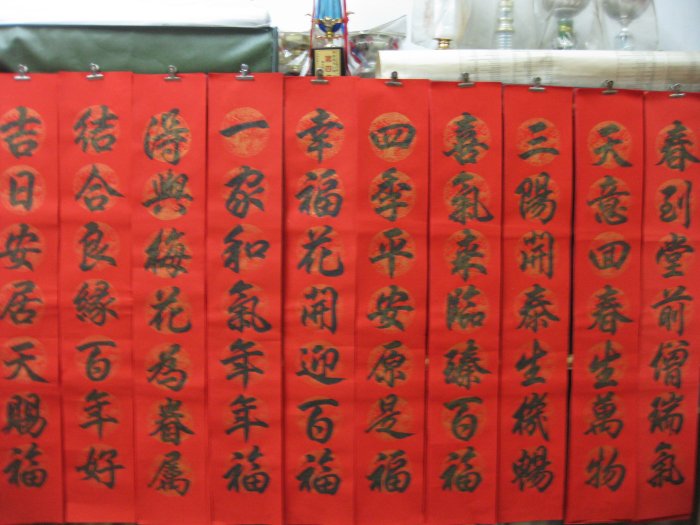 春到堂前增瑞氣
天意回春生萬物
三陽開泰生機暢
喜氣來臨臻百福
四季平安原是福
幸福花開迎百福
一家和氣年年福
得與梅花為眷屬
結合良緣百年好
吉日安居天賜福